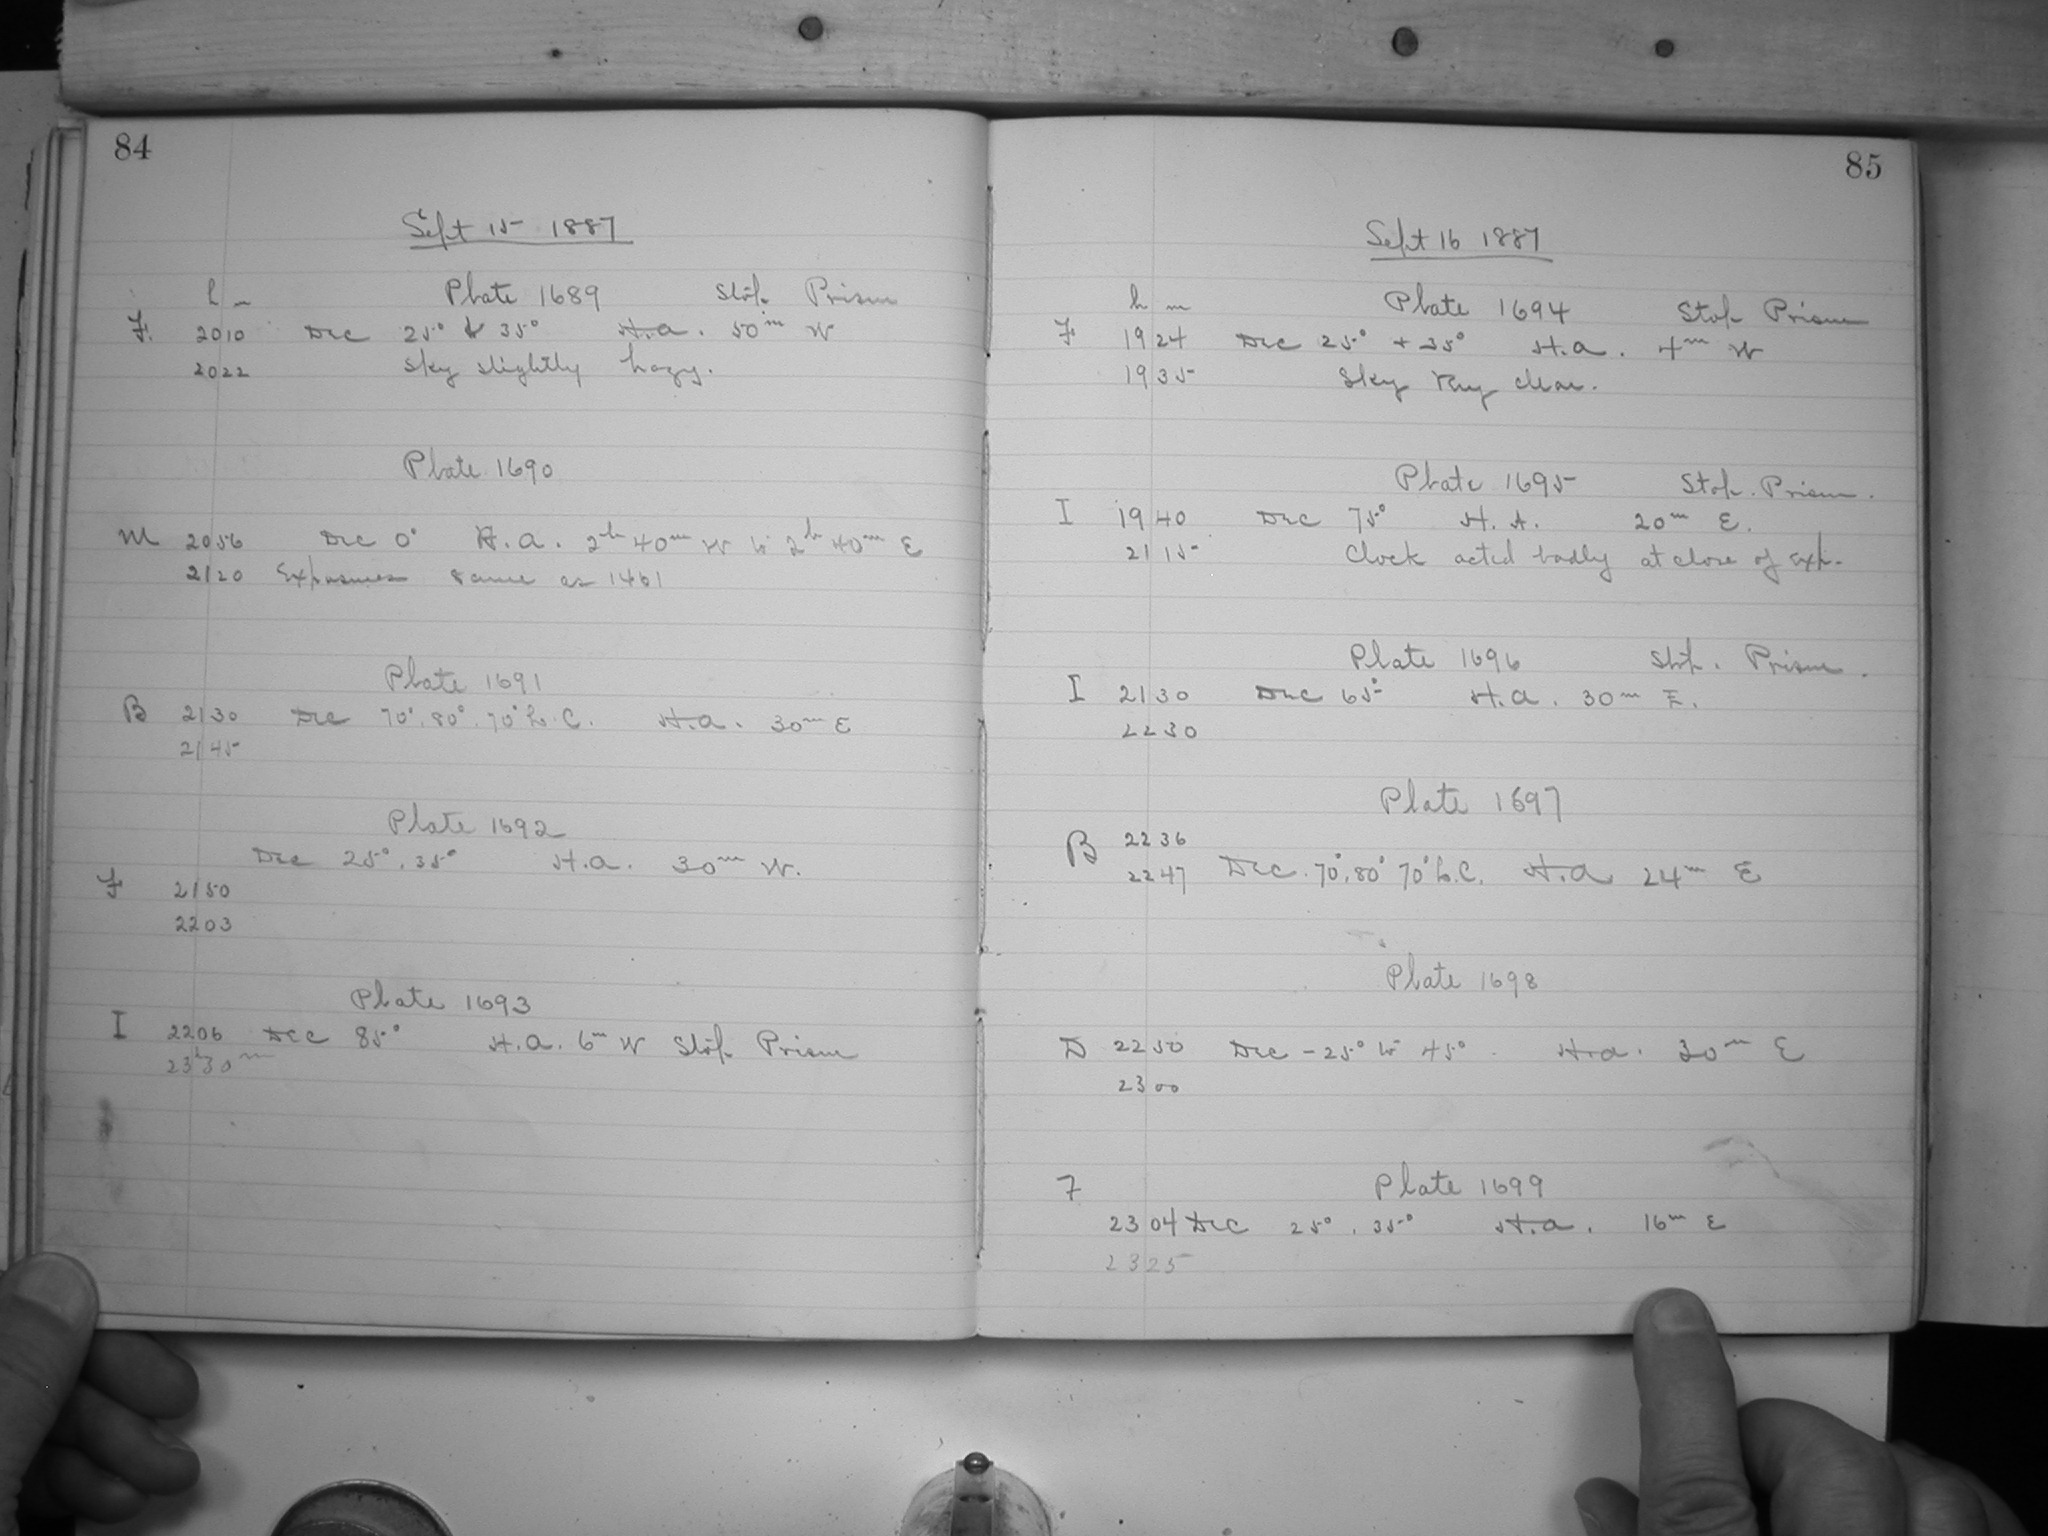 84
Sept 15 1887
h m
Plate 1689 Stop. Prism
F. 2010 Dec 25° & 35° H.A. 50m W
2022 Sky slightly hazy.
Plate 1690
M 2056 Dec 0° H.A. 2h 40m W to 2h 40m E
2120 Exposures same as 1461
Plate 1691
B 2130 Dec 70°, 80°, 70° L.C. H.A. 30m E
2145
Plate 1692
Dec 25°, 35° H.A. 30m W.
F 2150
2203
Plate 1693
I 2206 Dec 85° H.A. 6m W Stop. Prism
23h30m
85
Sept 16 1887
h m
Plate 1694 Stop Prism
F 1924 Dec 25° + 35° H.A. 4m W
1935 Sky Very clear.
Plate 1695 Stop. Prism.
I 1940 Dec 75° H.A. 20m E.
2115 Clock acted badly at close of Exp.
Plate 1696 Stop. Prism.
I 2130 Dec 65° H.A. 30m E.
2230
Plate 1697
B 2236
2247 Dec. 70°, 80° 70° L.C. H.A. 24m E
Plate 1698
D 2250 Dec -25° to 45°. H.A. 30m E
2300
F Plate 1699
2304 Dec 25°, 35° H.A. 16m E
2325